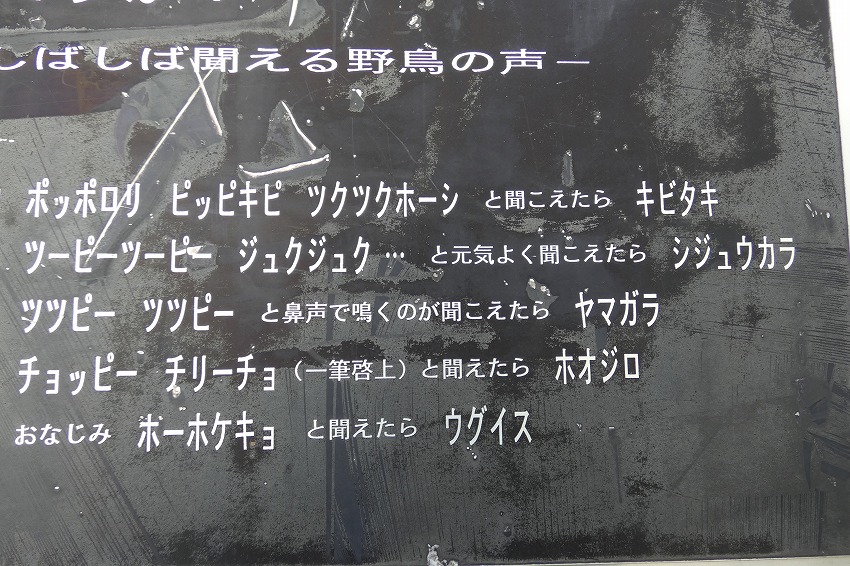 しばしば聞える野鳥の声－
ポッポロリ ピッピキピ ツクツクホーシ と聞こえたら キビタキ
ツーピーツーピー ジュクジュク … と元気よく聞こえたら シジュウカラ
ツツピー ツツピー と鼻声で鳴くのが聞こえたら ヤマガラ
チョッピー チリーチョ（一筆啓上）と聞えたら ホオジロ
おなじみ ホーホケキョ と聞えたら ウグイス